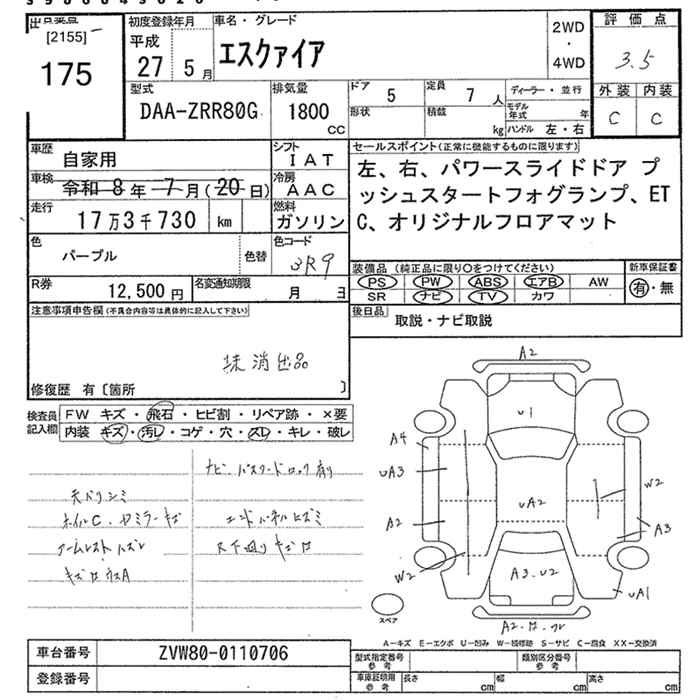 [2155]
175
初度登録年月
平成
27 5月
車名・グレード
エスクァイア
2WD
・
4WD
評価点
3.5
外装 内装
C C
型式
DAA-ZRR80G
排気量
1800 CC
ドア 5
定員 7 人
形状
積載 kg
ディーラー・並行
モデル年式 年
ハンドル 左・右
車歴
自家用
シフト
IAT
車検
令和 8年 7月(20日)
冷房
AAC
走行
17万3千730 km
燃料
ガソリン
色
パープル
色替
色コード
3R9
R券
12,500円
名変通知期限
月 日
セールスポイント(正常に機能するものに限ります)
左、右、パワースライドドア プ
ッシュスタートフォグランプ、ET
C、オリジナルフロアマット
装備品(純正品に限り○をつけてください)
PS PW ABS エアB AW
SR ナビ TV カワ
新車保証書
有・無
後日品
取説・ナビ取説
注意事項申告欄(不具合内容等は具体的に記入して下さい)
抹消出品
修復歴 有〔箇所 〕
検査員記入欄
FW キズ・飛石・ヒビ割・リペア跡・×要
内装 キズ・汚レ・コゲ・穴・スレ・キレ・破レ
ナビ、パスワードロック有り
天バリシミ
ホイルC、ドミラーキズ
エンドパネルヒズミ
アームレストハズレ
A2
U1
A4
UA3
A2
W2
UA2
W2
A3
A3.U2
UA1
スペア
A-キズ E-エクボ U-凹み W-補修跡 S-サビ C-腐食 XX-交換済
車台番号
ZVW80-0110706
登録番号
型式指定番号 参考
類別区分番号 参考
車庫証明用 参考
長さ cm
幅 cm
高さ cm